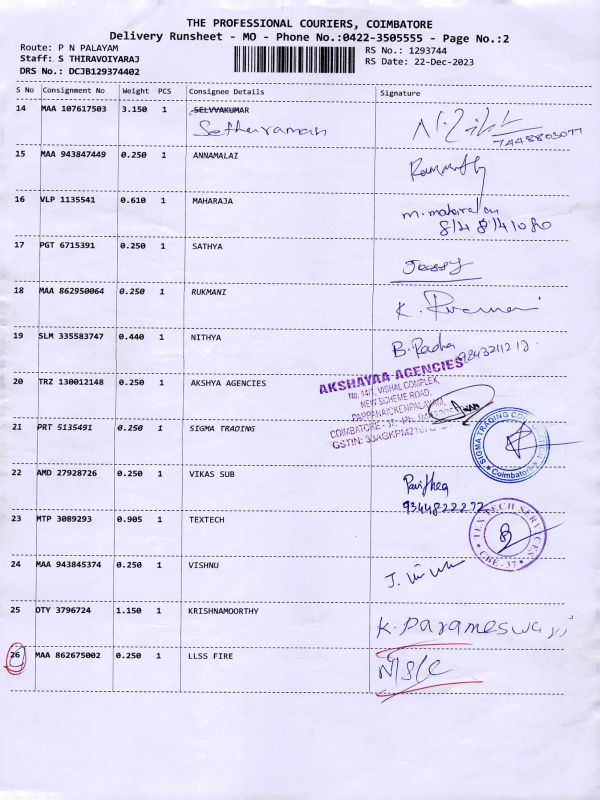 THE PROFESSIONAL COURIERS, COIMBATORE
Delivery Runsheet - MO - Phone No.:0422-3505555 - Page No.:2
Route: P N PALAYAM
Staff: S THIRAVOIYARAJ
DRS No.: DCJB129374402
RS No.: 1293744
RS Date: 22-Dec-2023
S No Consignment No Weight PCS Consignee Details Signature
14 MAA 107617503 3.150 1 SELVVAKUMAR
7448803077
15 MAA 943847449 0.250 1 ANNAMALAI
16 VLP 1135541 0.610 1 MAHARAJA
17 PGT 6715391 0.250 1 SATHYA
18 MAA 862950064 0.250 1 RUKMANI
K.
19 SLM 335583747 0.440 1 NITHYA B. Radha
20 TRZ 130012148 0.250 1 AKSHYA AGENCIES
AKSHAYAA AGENCIES
No. 14/1, VISHAL COMPLEX,
NEW SCHEME ROAD,
PAPPANAICKENPALAYAM,
COIMBATORE - 37.
21 PRT 5135491 0.250 1 SIGMA TRADING
SIGMA TRADING CORPORATION
Coimbatore
22 AMD 27928726 0.250 1 VIKAS SUB
9344822272
23 MTP 3089293 0.905 1 TEXTECH
TEXTECH SERVICES
CBE-37
24 MAA 943845374 0.250 1 VISHNU
25 OTY 3796724 1.150 1 KRISHNAMOORTHY K. Parameswari
26 MAA 862675002 0.250 1 LLSS FIRE N/S/C